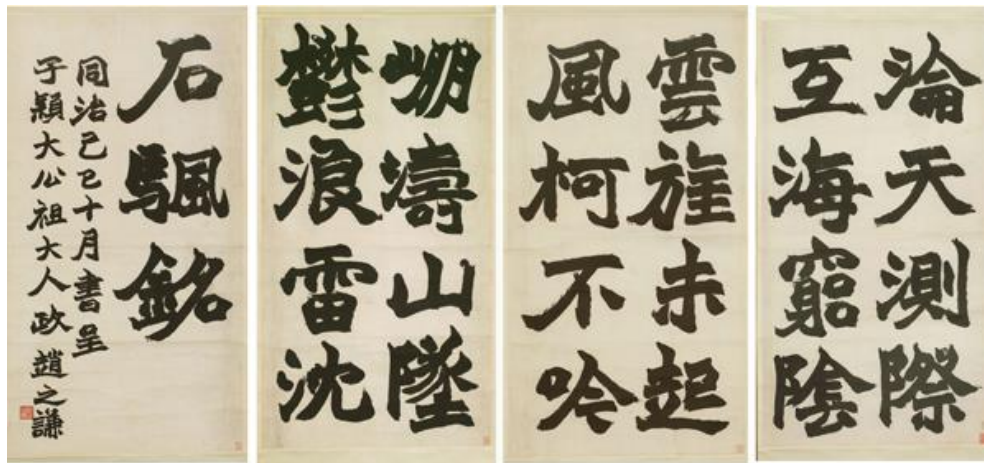 淪天測際
互海窮陰
雲旌未起
風柯不吟
崩濤山墜
鬱浪雷沈
石颿銘
同治己巳十月書呈
于穎大公祖大人政 趙之謙